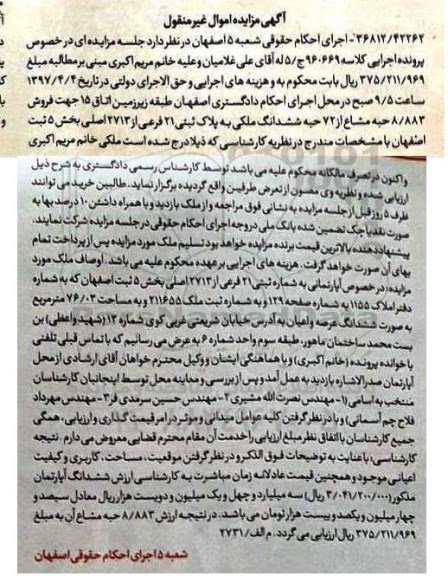 آگهی مزایده اموال غیر منقول
۳۶۸۱۲/۴۲۲۶۲- اجرای احکام حقوقی شعبه ۵ اصفهان در نظر دارد جلسه مزایده ای در خصوص
پرونده اجرایی کلاسه ۹۶۰۶۶۹ ج/۵ له آقای علی غلامیان و علیه خانم مریم اکبری مبنی بر مطالبه مبلغ
۳۷۵/۲۱۱/۹۶۹ ریال بابت محکوم به و هزینه های اجرایی و حق الاجرای دولتی در تاریخ ۱۳۹۷/۴/۴
ساعت ۹/۵ صبح در محل اجرای احکام دادگستری اصفهان طبقه زیرزمین اتاق ۱۵ جهت فروش
۸/۸۸۳ حبه مشاع از ۷۲ حبه ششدانگ ملکی به پلاک ثبتی ۲۱ فرعی از ۲۷۱۳ اصلی بخش ۵ ثبت
اصفهان با مشخصات مندرج در نظریه کارشناسی که ذیلا درج شده است ملکی خانم مریم اکبری
و اکنون در تصرف مالکانه محکوم علیه می باشد توسط کارشناس رسمی دادگستری به شرح ذیل
ارزیابی شده و نظریه وی مصون از تعرض طرفین واقع گردیده برگزار نماید. طالبین خرید می توانند
ظرف ۵ روز قبل از جلسه مزایده به نشانی فوق مراجعه و از ملک بازدید و با همراه داشتن ۱۰ درصد بها به
صورت نقد یا چک تضمین شده بانک ملی در وجه اجرای احکام حقوقی در جلسه مزایده شرکت نمایند.
پیشنهاد دهنده بالاترین قیمت برنده مزایده خواهد بود تسلیم ملک مورد مزایده پس از پرداخت تمام
بهای آن صورت خواهد گرفت. هزینه های اجرایی بر عهده محکوم علیه می باشد. اوصاف ملک مورد
مزایده: در خصوص آپارتمانی به شماره ثبتی ۲۱ فرعی از ۲۷۱۳ اصلی بخش ۵ ثبت اصفهان که به شماره
دفتر املاک ۱۱۵۵ به شماره صفحه ۱۲۹ و به شماره ثبت ملک ۲۱۱۶۵۵ و به مساحت ۷۶/۰۳ مترمربع
به صورت ششدانگ عرصه و اعیان به آدرس خیابان شریعتی غربی کوی شماره ۱۳ (شهید واعظی) بن
بست محمد ساختمان ماهور، طبقه سوم واحد شماره ۶ به عرض می رسانیم که با تماس قبلی تلفنی
با خوانده پرونده (خانم اکبری) و با هماهنگی ایشان و وکیل محترم خواهان آقای ارشادی از محل
آپارتمان صدرالاشاره بازدید به عمل آمد و پس از بررسی و معاینه محل توسط اینجانبان کارشناسان
منتخب به اسامی (۱- مهندس نصرت الله مشیری ۲- مهندس حسین سرمدی فر ۳- مهندس مهرداد
فلاح چم آسمانی) و با در نظر گرفتن کلیه عوامل میدانی و موثر در امر قیمت گذاری و ارزیابی، همگی
جمیع کارشناسان با اتفاق نظر مبلغ ارزیابی را خدمت آن مقام محترم قضایی معروض می دارم. نتیجه
کارشناسی: با عنایت به توضیحات فوق الذکر و در نظر گرفتن موقعیت، مساحت، کاربری و کیفیت
اعیانی موجود و همچنین قیمت عادلانه زمان مباشرت به کارشناسی ارزش ششدانگ آپارتمان
مذکور (۳/۰۴۱/۲۰۰/۰۰۰ ریال) سه میلیارد و چهل و یک میلیون و دویست هزار ریال معادل سیصد و
چهار میلیون و یکصد و بیست هزار تومان می باشد. در نتیجه ارزش ۸/۸۸۳ حبه مشاع آن به مبلغ
۳۷۵/۲۱۱/۹۶۹ ریال ارزیابی می گردد. م الف/۲۷۳۱
شعبه ۵ اجرای احکام حقوقی اصفهان